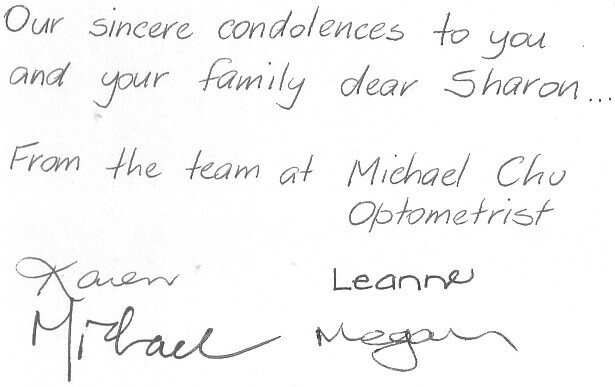 Our sincere condolences to you
and your family dear Sharon...
From the team at Michael Chu
Optometrist
Karen Leanne
Michael Megan